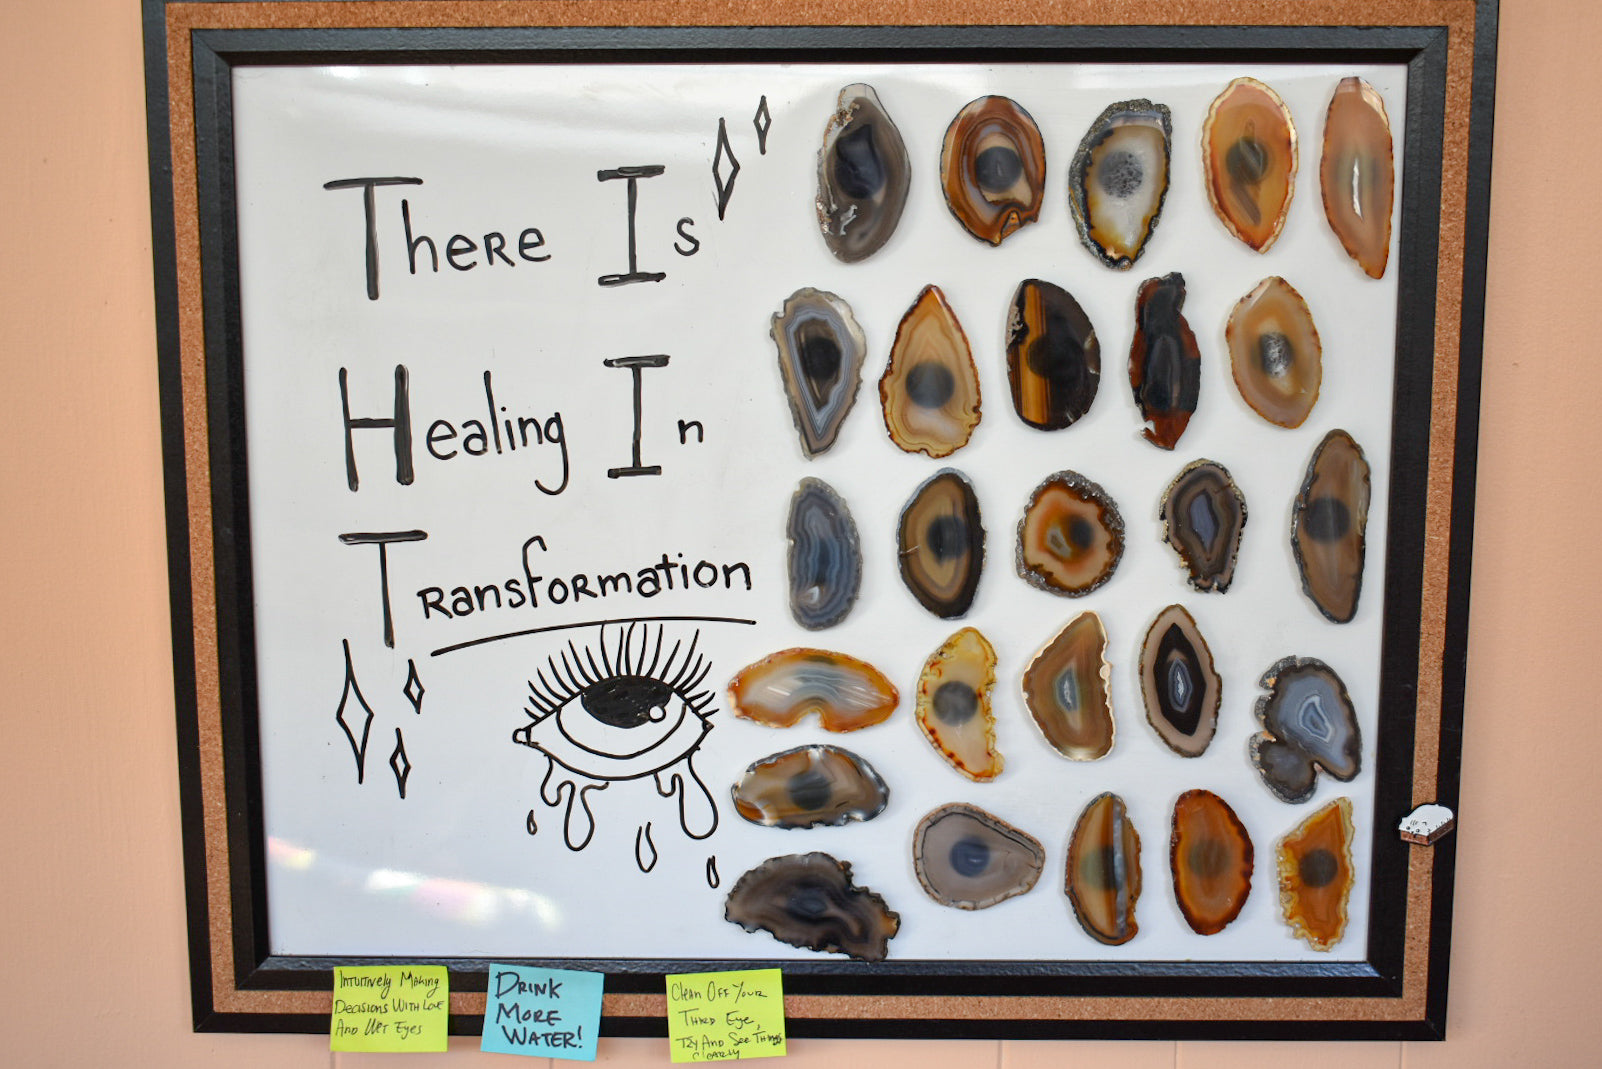 There Is
Healing In
Transformation
Intuitively Making
Decisions With Love
And Wet Eyes
DRINK
MORE
WATER!
Clean Off Your
Third Eye,
Try And See Things
Clearly